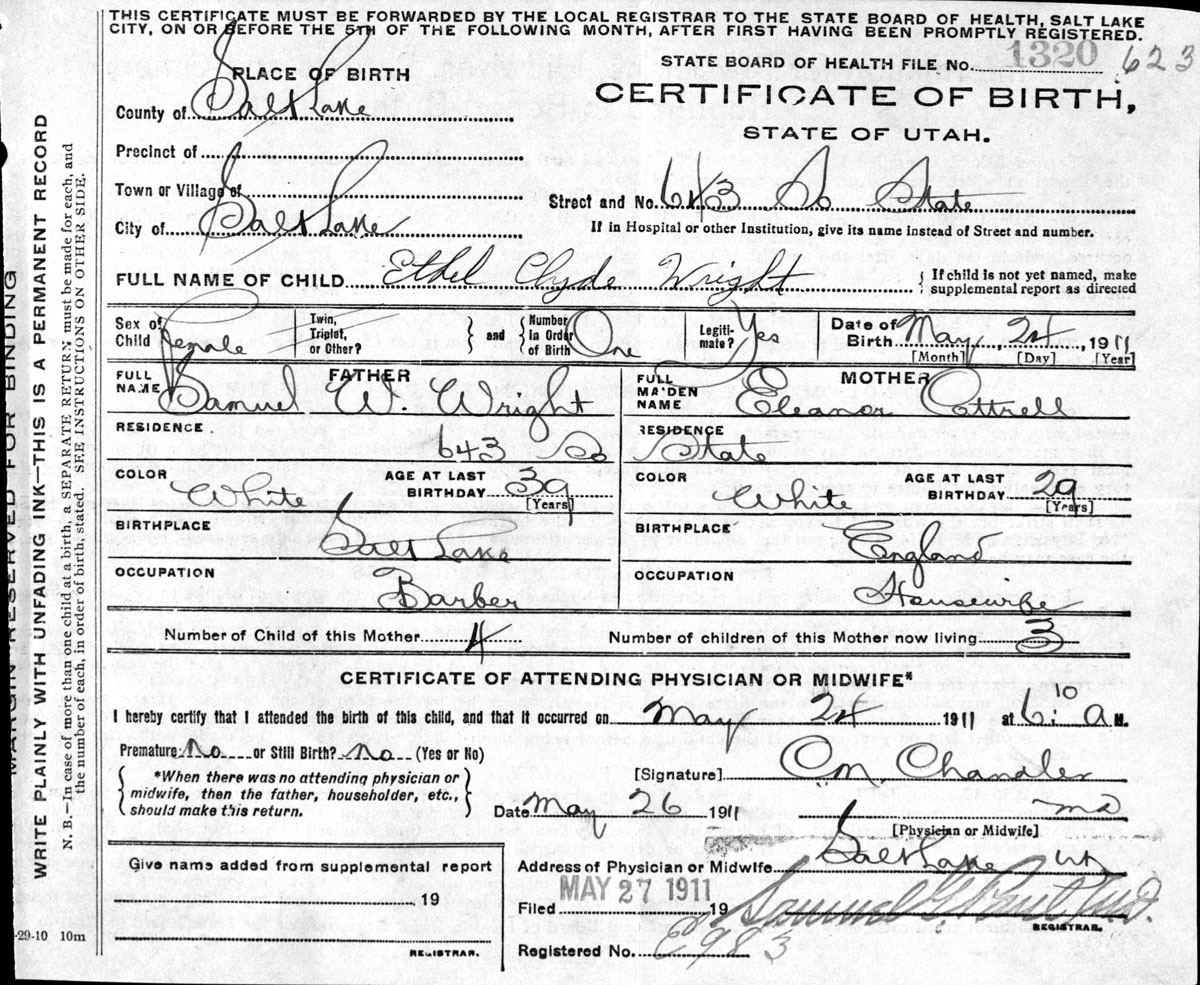 THIS CERTIFICATE MUST BE FORWARDED BY THE LOCAL REGISTRAR TO THE STATE BOARD OF HEALTH, SALT LAKE
CITY, ON OR BEFORE THE 5TH OF THE FOLLOWING MONTH, AFTER FIRST HAVING BEEN PROMPTLY REGISTERED.
STATE BOARD OF HEALTH FILE No. 1320 623
PLACE OF BIRTH
CERTIFICATE OF BIRTH,
County of Salt Lake
STATE OF UTAH.
Precinct of
Town or Village of
Street and No. 643 So State
City of Salt Lake
If in Hospital or other Institution, give its name instead of Street and number.
FULL NAME OF CHILD Ethel Clyde Wright
{ If child is not yet named, make
supplemental report as directed
Sex of Child Female
Twin, Triplet, or Other?
and
Number in Order of Birth One
Legiti-mate? Yes
Date of Birth May 24, 1911
[Month] [Day] [Year]
FATHER
FULL NAME Samuel W. Wright
MOTHER
FULL MAIDEN NAME Eleanor Cottrell
RESIDENCE 643 So
RESIDENCE State
COLOR White
AGE AT LAST BIRTHDAY 39
[Years]
COLOR White
AGE AT LAST BIRTHDAY 29
[Years]
BIRTHPLACE Salt Lake
BIRTHPLACE England
OCCUPATION Barber
OCCUPATION Housewife
Number of Child of this Mother 4
Number of children of this Mother now living 3
CERTIFICATE OF ATTENDING PHYSICIAN OR MIDWIFE*
I hereby certify that I attended the birth of this child, and that it occurred on May 24 1911 at 6:10 A M.
Premature: No or Still Birth? No (Yes or No)
{ *When there was no attending physician or
midwife, then the father, householder, etc.,
should make this return. }
[Signature] C.M. Chandler
Date May 26 1911
MD
[Physician or Midwife]
Address of Physician or Midwife Salt Lake Ut
Give name added from supplemental report
19
REGISTRAR.
Filed MAY 27 1911 19
Samuel G. Paul M.D.
REGISTRAR.
Registered No. E983
-29-10 10m
MARGIN RESERVED FOR BINDING
WRITE PLAINLY WITH UNFADING INK—THIS IS A PERMANENT RECORD
N. B.—In case of more than one child at a birth, a SEPARATE RETURN must be made for each, and
the number of each, in order of birth stated. SEE INSTRUCTIONS ON OTHER SIDE.